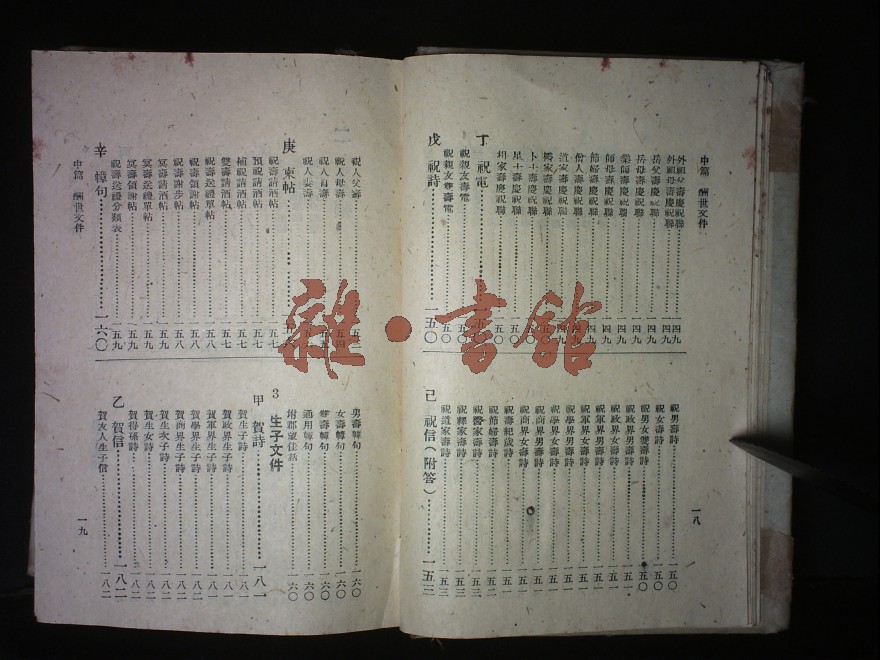 中篇 酬世文件
外祖父壽慶祝聯 四九
外祖母壽慶祝聯 四九
岳父壽慶祝聯 四九
岳母壽慶祝聯 四九
業師壽慶祝聯 四九
師母壽慶祝聯 四九
節婦壽慶祝聯 四九
僧人壽慶祝聯 四九
道家壽慶祝聯
醫家壽慶祝聯
卜士壽慶祝聯 五〇
星士壽慶祝聯
堪家壽慶祝聯
丁 祝電
祝親友壽電
祝親友雙壽電 五〇
戊 祝詩 一五〇
祝男壽詩 一五〇
祝女壽詩 一五〇
祝男女雙壽詩 一五〇
祝政界男壽詩 一五一
祝政界女壽詩 一五一
祝軍界男壽詩 一五一
祝軍界女壽詩 一五一
祝學界男壽詩 一五一
祝學界女壽詩 一五一
祝商界男壽詩 一五一
祝商界女壽詩 一五一
壽耄歲詩
祝節婦壽詩 一五二
祝醫家壽詩 一五三
祝釋家壽詩 一五三
祝道家壽詩 一五三
己 祝信(附答) 一五三
一八
祝人父壽
祝人母壽
祝人自壽
祝人妻壽
庚 柬帖
祝壽請酒帖 五七
預祝請酒帖 五七
補祝請酒帖 五七
雙壽請酒帖 五七
祝壽送禮單帖 五八
祝壽領謝帖 五八
祝壽謝步帖 五八
冥壽請酒帖 五九
冥壽送禮帖 五九
冥壽領謝帖 五九
祝壽送禮分類表 五九
辛 幛句 一六〇
中篇 酬世文件
男壽幛句 一六〇
女壽幛句 一六〇
雙壽幛句 一六〇
通用幛句 一六〇
附郡望佳話 一六〇
3 生子文件
甲 賀詩 一八一
賀生子詩 一八一
賀政界生子詩 一八一
賀軍界生子詩 一八一
賀學界生子詩 一八一
賀商界生子詩 一八二
賀生次子詩 一八二
賀生女詩 一八二
賀得孫詩 一八二
乙 賀信 一八二
賀友人生子信 一八二
一九
雜·書館